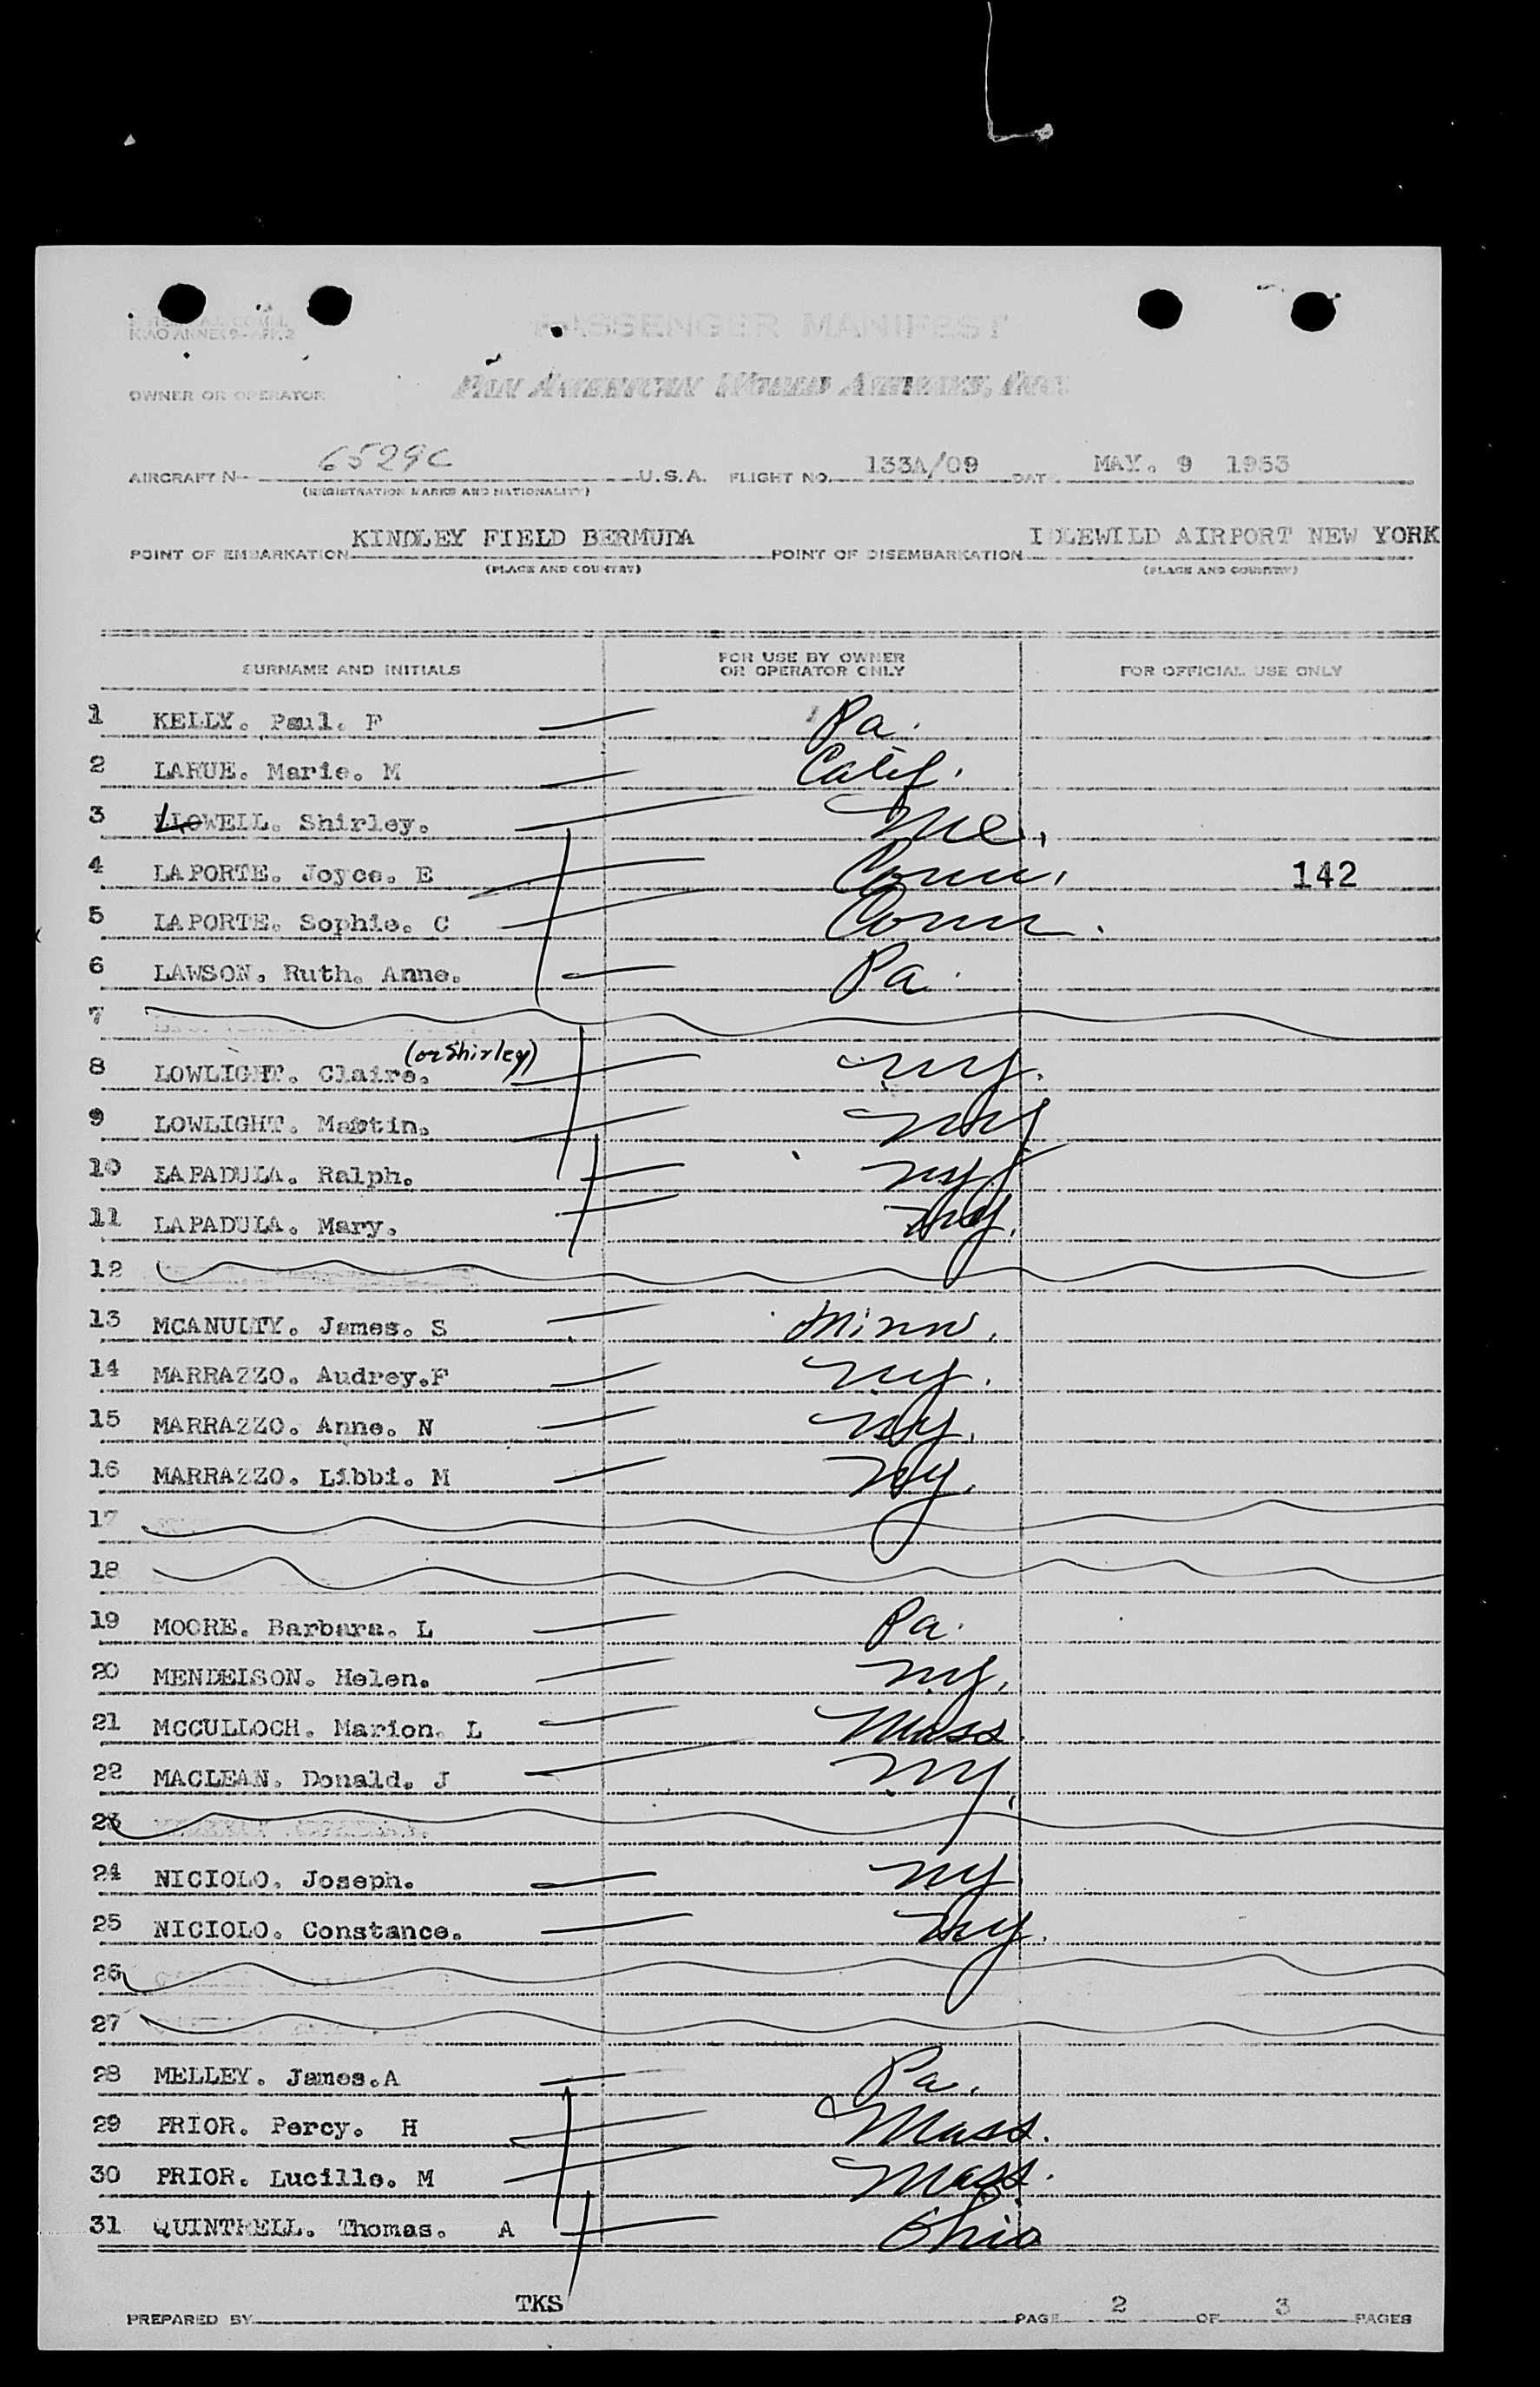 ICAO ANNEX 9-APP.2
PASSENGER MANIFEST
OWNER OR OPERATOR PAN AMERICAN WORLD AIRWAYS, INC.
AIRCRAFT N 6529C U.S.A. FLIGHT NO. 133A/09 DATE MAY. 9 1953
(REGISTRATION MARKS AND NATIONALITY)
POINT OF EMBARKATION KINDLEY FIELD BERMUDA POINT OF DISEMBARKATION IDLEWILD AIRPORT NEW YORK
(PLACE AND COUNTRY) (PLACE AND COUNTRY)
SURNAME AND INITIALS FOR USE BY OWNER OR OPERATOR ONLY FOR OFFICIAL USE ONLY
1 KELLY. Paul. F Pa.
2 LARUE. Marie. M Calif.
3 LLOWELL. Shirley. Me.
4 LAPORTE. Joyce. E Conn. 142
5 LAPORTE. Sophie. C Conn.
6 LAWSON. Ruth. Anne. Pa.
7
8 LOWLIGHT. Claire. (or Shirley) NY.
9 LOWLIGHT. Martin. NY
10 LAPADULA. Ralph. NY
11 LAPADULA. Mary. NY.
12
13 MCANULTY. James. S Minn.
14 MARRAZZO. Audrey.F NY.
15 MARRAZZO. Anne. N NY.
16 MARRAZZO. Libbi. M NY.
17
18
19 MOORE. Barbara. L Pa.
20 MENDELSON. Helen. NY.
21 MCCULLOCH. Marion. L Mass.
22 MACLEAN. Donald. J NY.
23
24 NICIOLO. Joseph. NY.
25 NICIOLO. Constance. NY.
26
27
28 MELLEY. James.A Pa.
29 PRIOR. Percy. H Mass.
30 PRIOR. Lucille. M Mass.
31 QUINTRELL. Thomas. A Ohio
PREPARED BY TKS PAGE 2 OF 3 PAGES